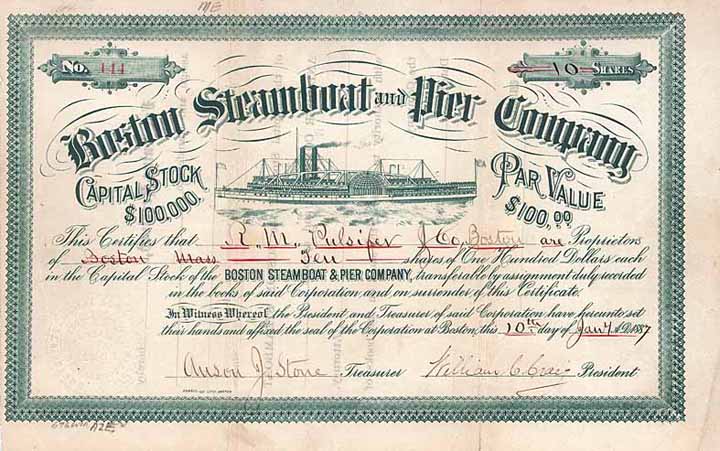 No. 444
10 SHARES
Boston Steamboat and Pier Company
CAPITAL STOCK
$100,000.
PAR VALUE
$100,00
This Certifies that R. M. Pulsifer & Co. Boston are Proprietors
of Boston Mass Ten shares of One Hundred Dollars each
in the Capital Stock of the BOSTON STEAMBOAT & PIER COMPANY, transferable by assignment duly recorded
in the books of said Corporation, and on surrender of this Certificate.
In Witness Whereof, the President and Treasurer of said Corporation have hereunto set
their hands and affixed the seal of the Corporation at Boston, this 10th day of Jany A.D. 1887
Anson J. Stone Treasurer William C. President